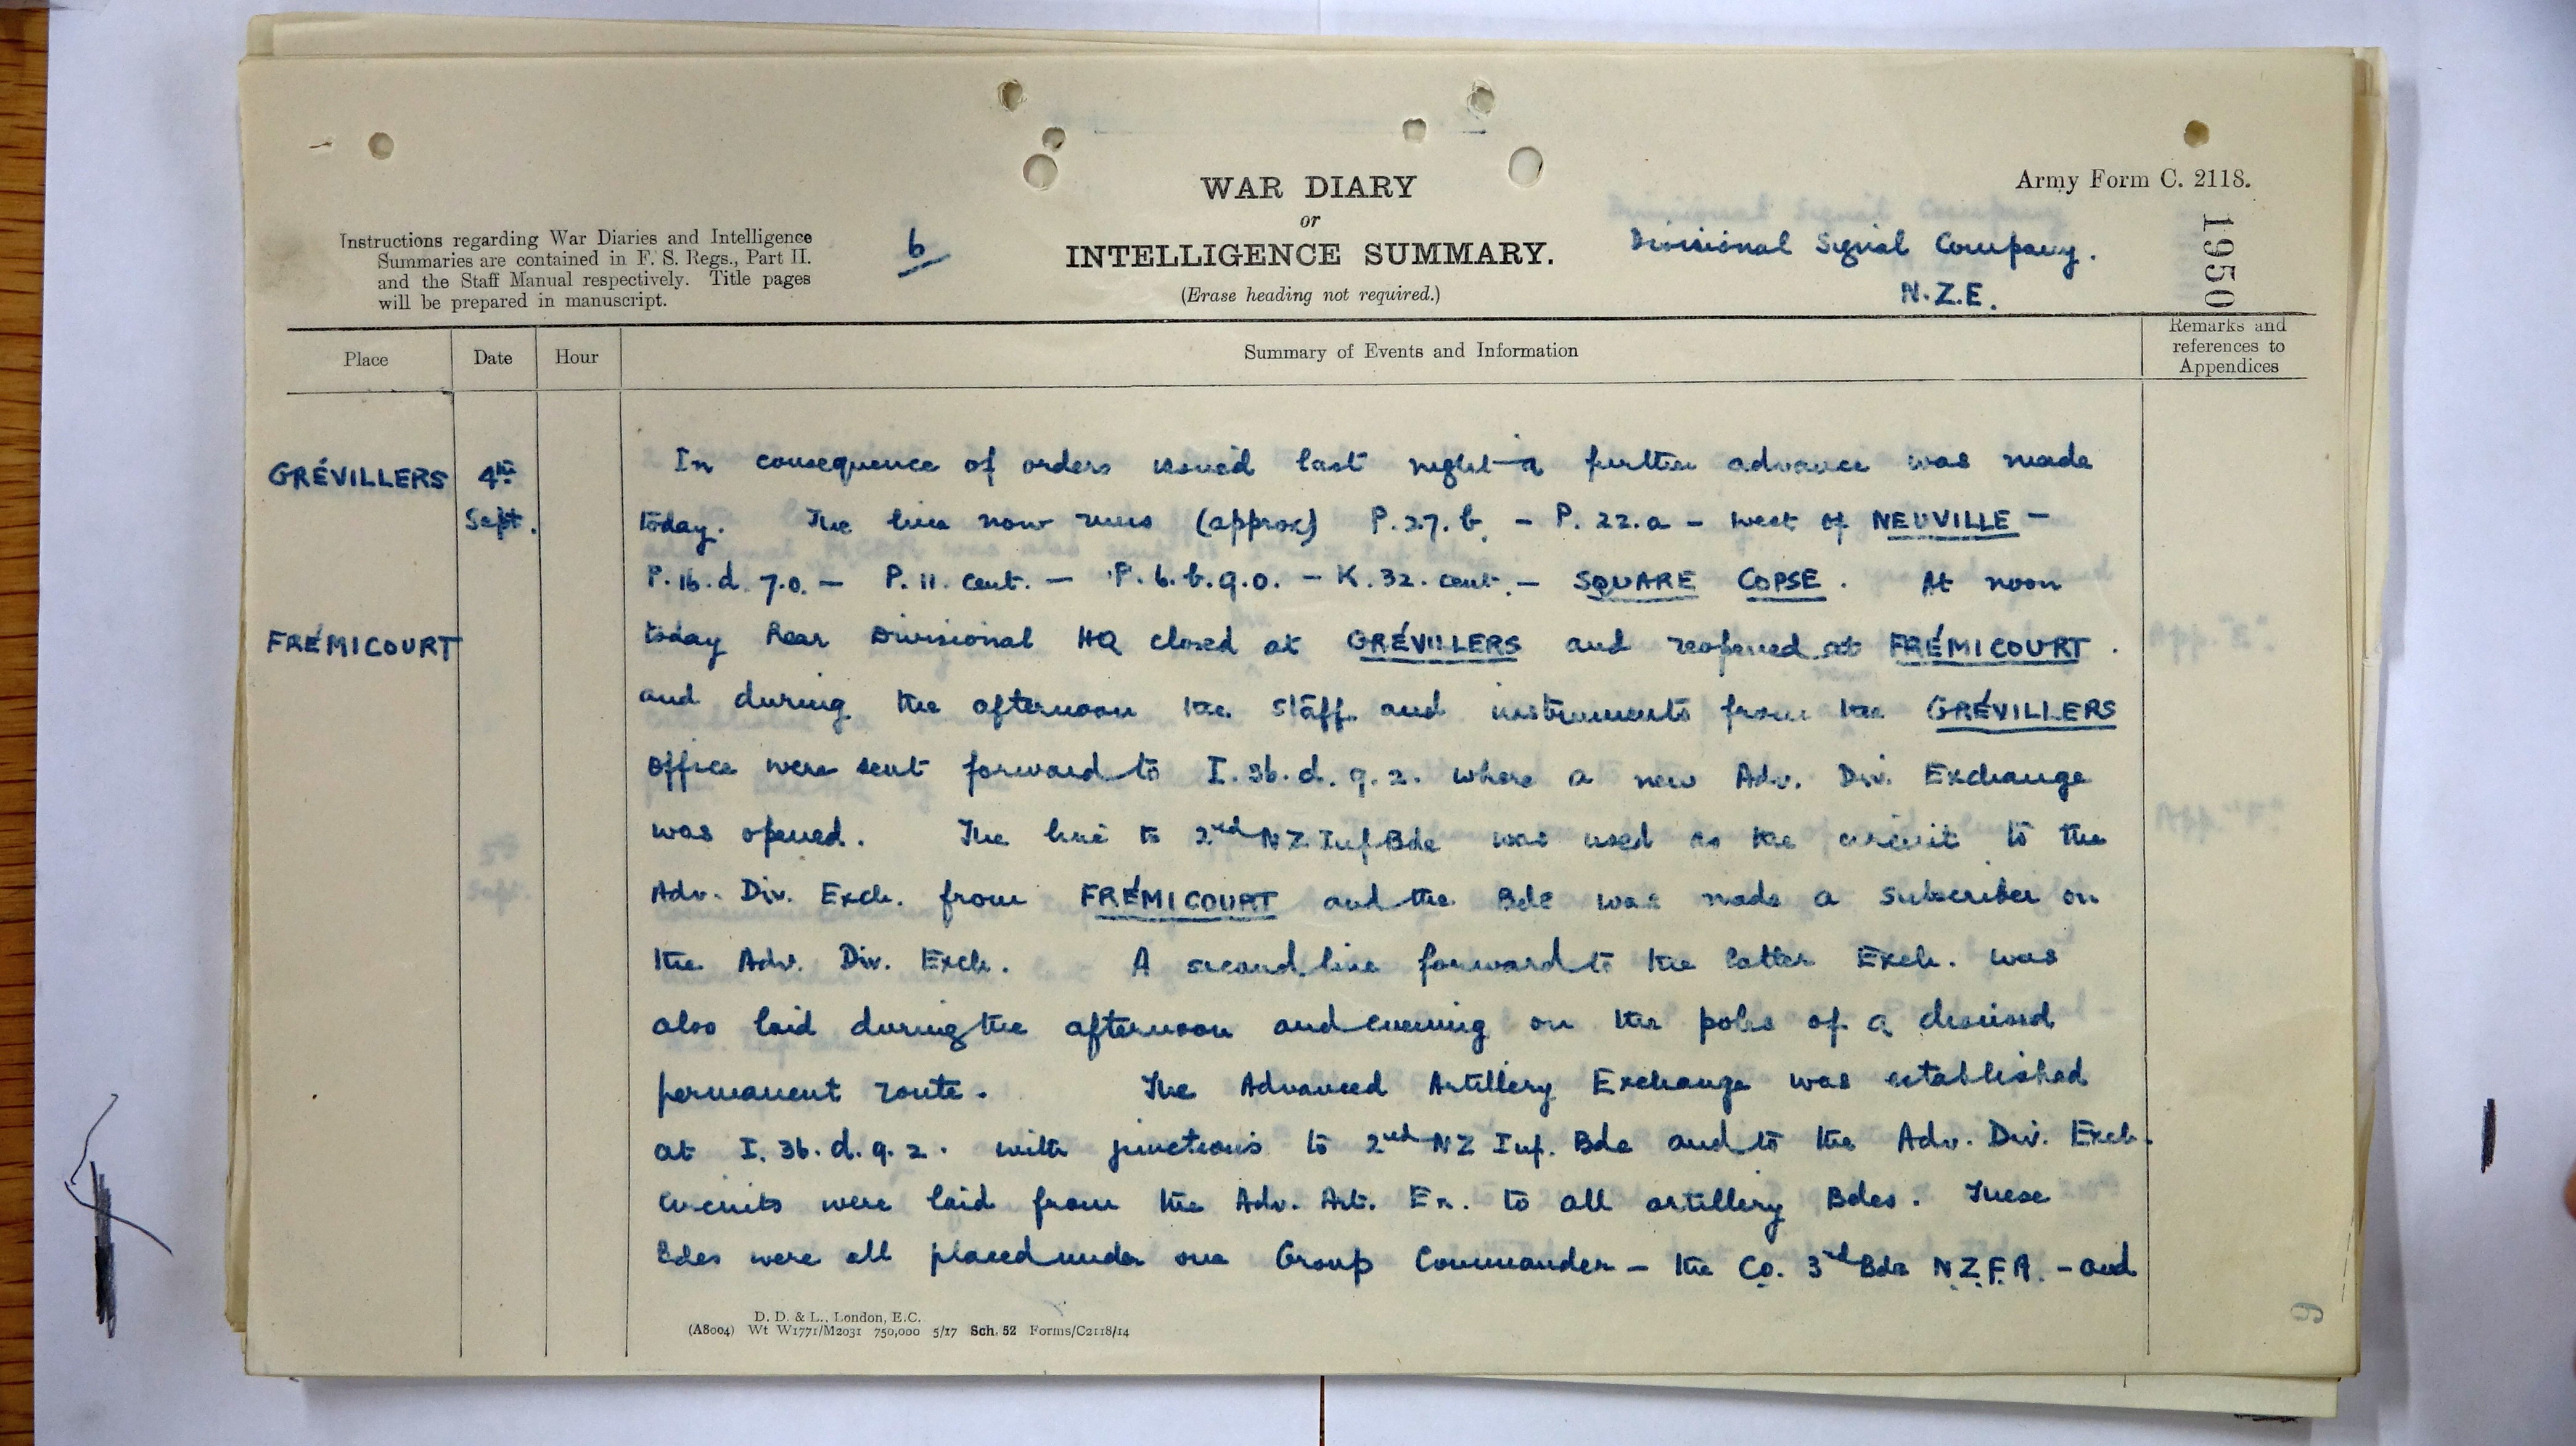 Army Form C. 2118.
WAR DIARY
or
INTELLIGENCE SUMMARY.
(Erase heading not required.)
Instructions regarding War Diaries and Intelligence
Summaries are contained in F. S. Regs., Part II.
and the Staff Manual respectively. Title pages
will be prepared in manuscript.
6
Divisional Signal Company.
N.Z.E.
1950
Place
Date
Hour
Summary of Events and Information
Remarks and
references to
Appendices
GRÉVILLERS
4th
Sept.
FRÉMICOURT
In consequence of orders issued last night a further advance was made
today. The line now runs (approx) P.27.b. - P.22.a - west of NEUVILLE -
P.16.d.7.0. - P.11.cent. - P.6.b.9.0. - K.32.cent. - SQUARE COPSE. At noon
today Rear Divisional HQ closed at GRÉVILLERS and reopened at FRÉMICOURT.
and during the afternoon the staff and instruments from the GRÉVILLERS
office were sent forward to I.36.d.9.2. where a new Adv. Div. Exchange
was opened. The line to 2nd NZ Inf Bde was used as the circuit to the
Adv. Div. Exch. from FRÉMICOURT and the Bde was made a subscriber on
the Adv. Div. Exch. A second line forward to the latter Exch. was
also laid during the afternoon and evening on the poles of a disused
permanent route. The Advanced Artillery Exchange was established
at I.36.d.9.2. with junctions to 2nd NZ Inf. Bde and to the Adv. Div. Exch.
Circuits were laid from the Adv. Art. Ex. to all artillery Bdes. These
Bdes were all placed under one Group Commander - the Co. 3rd Bde N.Z.F.A. - and
D. D. & L., London, E.C.
(A8004) Wt W1771/M2031 750,000 5/17 Sch. 52 Forms/C2118/14